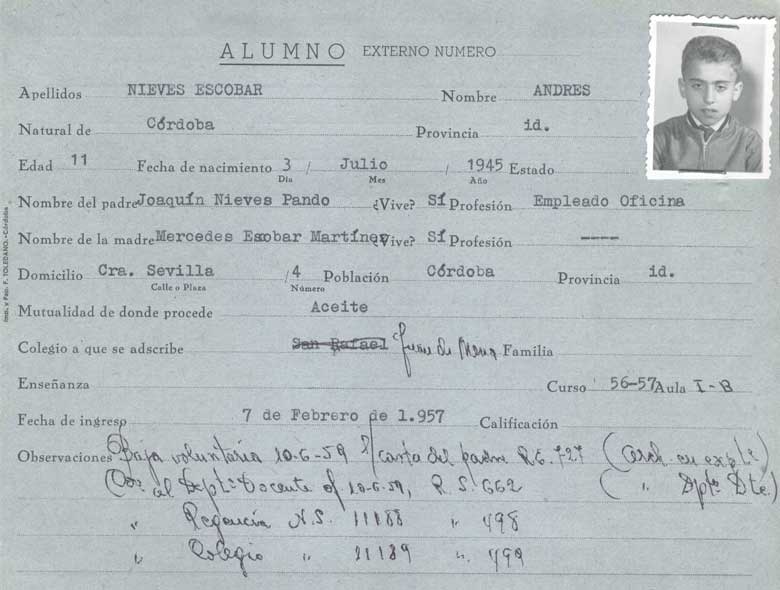 ALUMNO EXTERNO NUMERO
Apellidos NIEVES ESCOBAR Nombre ANDRES
Natural de Córdoba Provincia id.
Edad 11 Fecha de nacimiento 3 / Julio / 1945 Estado
Día Mes Año
Nombre del padre Joaquín Nieves Pando ¿Vive? Sí Profesión Empleado Oficina
Nombre de la madre Mercedes Escobar Martínez ¿Vive? Sí Profesión ----
Domicilio Cra. Sevilla / 4 Población Córdoba Provincia id.
Calle o Plaza Número
Mutualidad de donde procede Aceite
Colegio a que se adscribe San Rafael Juan de Mena Familia
Enseñanza Curso 56-57 Aula I-B
Fecha de ingreso 7 de Febrero de 1.957 Calificación
Observaciones Baja voluntaria 10-6-59 s/ carta del padre R.E. 727 (Arch. en expte)
al Dptº Docente of 10-6-59, R.S. 662 ( " Dptº Dte.)
" Regencia N.S. 11188 " 498
" Colegio " 11189 " 499
Imp. y Pap. F. TOLEDANO.-Córdoba